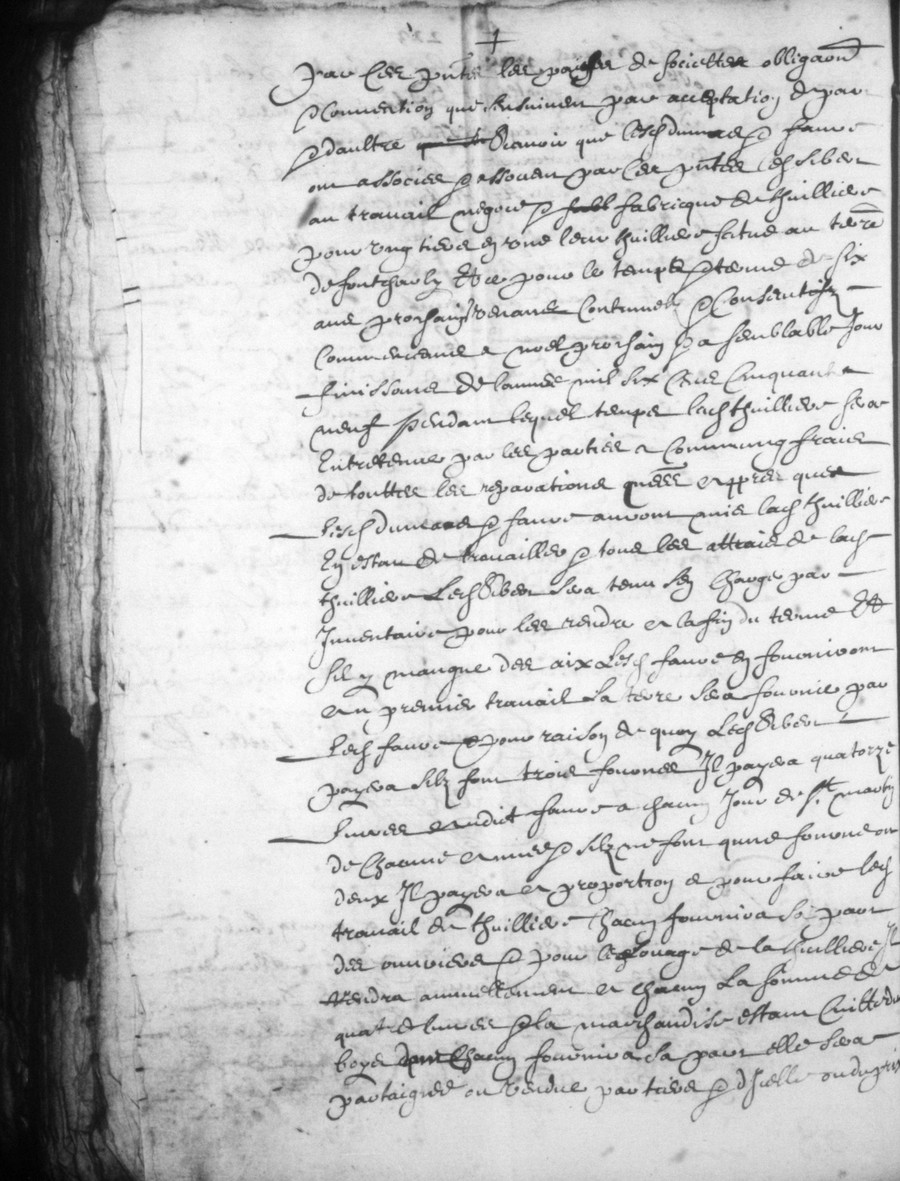 par ces pntes les parties de societtee obligaon
& Convention que sensuiven par acceptation de par
& daultre Scavoir que lesd dumas & faure
ont associes & assosien par ces pntes led siber
au travail negoce & fabricque de thuilliere
pour ung tiers en une leur thuilliere scitue au terre
de fontcharly Et ce pour le temps & terme de six
ans prochains venans Continuels & Consecutifz
Commencans a noel prochain & a semblable Jour
finissans de lannee mil six Cens Cinquante
neuf pendant lequel temps lad thuilliere sera
Entretenue par les parties a Commung fraies
de touttes les reparations apprès que
lesd dumas & faure auront mis lad thuilliere
En estat de travailler & tous les attrais de lad
thuilliere Led Siber sera tenu sen Charger par
Inventaire pour les rendre a la fin du terme Et
sil y manque des aix Lesd faure en fourniront
au premier travail La terre sera fournie par
Led faure & pour raison de quoy Led Siber
payera silz font trois fournees Il payera quatorze
livres audict faure a chacun Jour de St martin
de Chacune annee & silz ne font qune fournee ou
deux Il payera a proportion & pour faire led
travail de thuilliere Chacun fournira sa part
des ouvriers & pour le louage de la thuilliere Il
rendra annuellement a chacun La somme de
quatre livres & la marchandise estant Cuitte du
boys dont Chacun fournira sa part elle sera
partaigee ou vendue par tiers & dicelle ou du pris